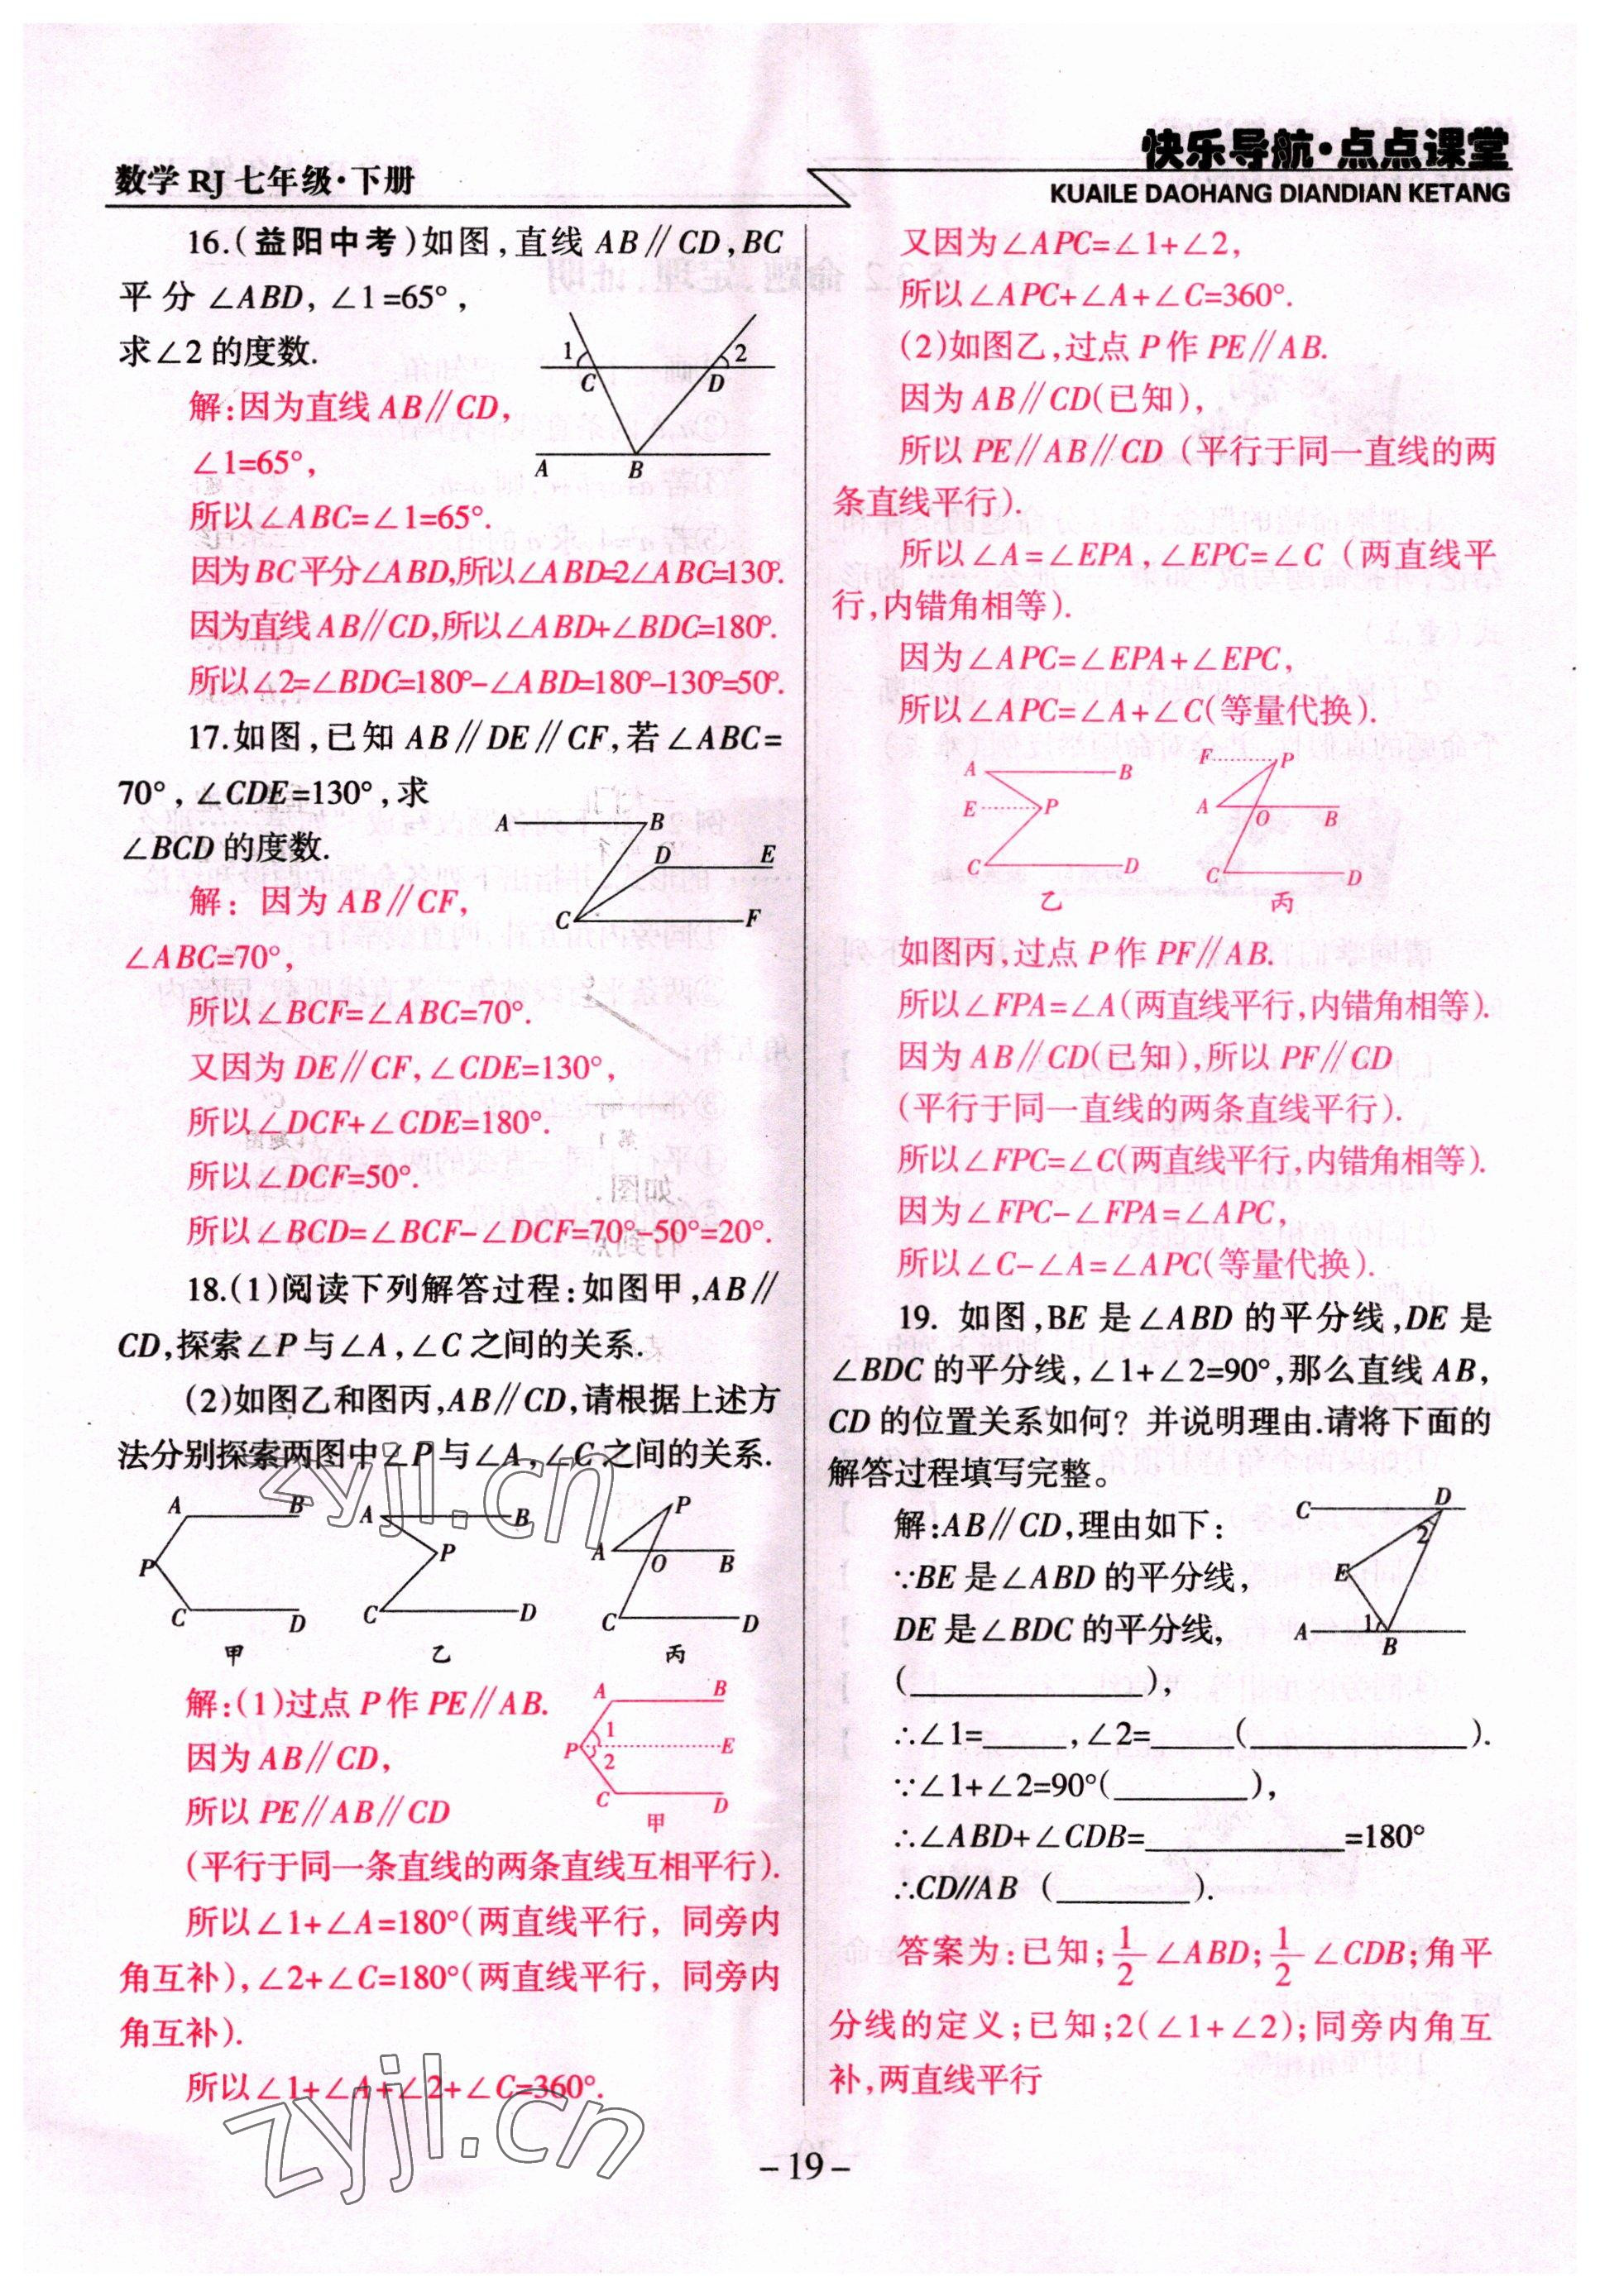 数学 RJ 七年级·下册
快乐导航·点点课堂
KUAILE DAOHANG DIANDIAN KETANG
16.(益阳中考)如图,直线 AB∥CD,BC
平分∠ABD,∠1=65°,
求∠2的度数.
1
2
C
D
A
B
解:因为直线 AB∥CD,
∠1=65°,
所以∠ABC=∠1=65°.
因为BC平分∠ABD,所以∠ABD=2∠ABC=130°.
因为直线AB∥CD,所以∠ABD+∠BDC=180°.
所以∠2=∠BDC=180°-∠ABD=180°-130°=50°.
17.如图,已知 AB∥DE∥CF,若∠ABC=
70°,∠CDE=130°,求
∠BCD 的度数.
A
B
D
E
C
F
解: 因为 AB∥CF,
∠ABC=70°,
所以∠BCF=∠ABC=70°.
又因为 DE∥CF,∠CDE=130°,
所以∠DCF+∠CDE=180°.
所以∠DCF=50°.
所以∠BCD=∠BCF-∠DCF=70°-50°=20°.
18.(1)阅读下列解答过程:如图甲,AB∥
CD,探索∠P与∠A,∠C之间的关系.
(2)如图乙和图丙,AB∥CD,请根据上述方
法分别探索两图中∠P与∠A,∠C之间的关系.
A B
P
C D
甲
A B
P
C D
乙
P
A O B
C D
丙
解:(1)过点 P 作 PE∥AB.
因为 AB∥CD,
所以 PE∥AB∥CD
A B
1
P E
2
C D
甲
(平行于同一条直线的两条直线互相平行).
所以∠1+∠A=180°(两直线平行, 同旁内
角互补),∠2+∠C=180°(两直线平行, 同旁内
角互补).
所以∠1+∠A+∠2+∠C=360°.
又因为∠APC=∠1+∠2,
所以∠APC+∠A+∠C=360°.
(2)如图乙,过点 P 作 PE∥AB.
因为 AB∥CD(已知),
所以 PE∥AB∥CD (平行于同一直线的两
条直线平行).
所以∠A=∠EPA,∠EPC=∠C (两直线平
行,内错角相等).
因为∠APC=∠EPA+∠EPC,
所以∠APC=∠A+∠C(等量代换).
A B
E P
C D
乙
F P
A O B
C D
丙
如图丙,过点 P 作 PF∥AB.
所以∠FPA=∠A(两直线平行,内错角相等).
因为 AB∥CD(已知),所以 PF∥CD
(平行于同一直线的两条直线平行).
所以∠FPC=∠C(两直线平行,内错角相等).
因为∠FPC-∠FPA=∠APC,
所以∠C-∠A=∠APC(等量代换).
19. 如图,BE 是∠ABD 的平分线,DE 是
∠BDC 的平分线,∠1+∠2=90°,那么直线 AB,
CD 的位置关系如何? 并说明理由.请将下面的
解答过程填写完整。
解:AB∥CD,理由如下:
∵BE 是∠ABD 的平分线,
DE 是∠BDC 的平分线,
C D
2
E
1
A B
(______________),
∴∠1=_____,∠2=_____(_____________).
∵∠1+∠2=90°(________),
∴∠ABD+∠CDB=____________=180°
∴CD//AB (________).
答案为:已知;1/2∠ABD;1/2∠CDB;角平
分线的定义;已知;2(∠1+∠2);同旁内角互
补,两直线平行
-19-
zyjl.cn
zyjl.cn